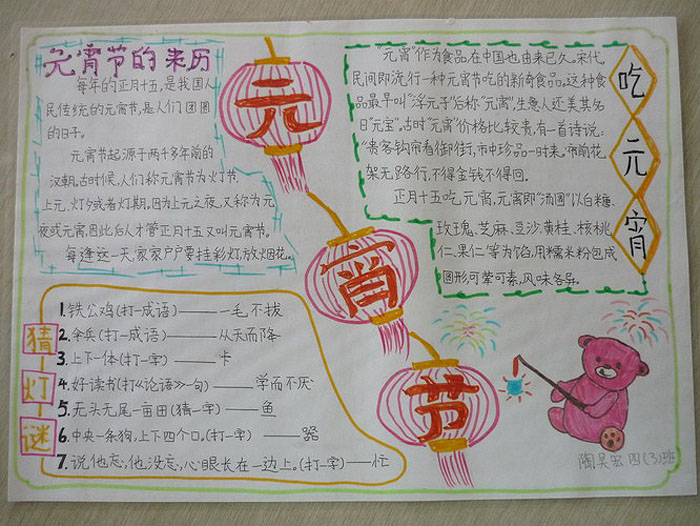 元宵节的来历
每年的正月十五,是我国人
民传统的元宵节,是人们团圆
的日子。
元宵节起源于两千多年前的
汉朝,古时候,人们称元宵节为灯节,
上元,灯夕或者灯期。因为上元之夜,又称为元
夜或元宵,因此后人才管正月十五又叫元宵节。
每逢这一天,家家户户要挂彩灯,放烟花。
元
宵
节
“元宵”作为食品在中国也由来已久。宋代,
民间即流行一种元宵节吃的新奇食品。这种食
品最早叫“浮元子”后称“元宵”,生意人还美其名
曰“元宝”。古时“元宵”价格比较贵,有一首诗说:
“贵客钩帘看御街,市中珍品一时来。帘前花
架无路行,不得金钱不得回。
正月十五吃元宵,元宵即“汤圆”以白糖、
玫瑰、芝麻、豆沙、黄桂、核桃
仁、果仁等为馅,用糯米粉包成
圆形,可荤可素,风味各异。
吃
元
宵
猜
灯
谜
1.铁公鸡(打一成语)——一毛不拔
2.伞兵(打一成语)——从天而降
3.上下一体(打一字)——卡
4.好读书(打《论语》一句)——学而不厌
5.无头无尾一亩田(猜一字)——鱼
6.中央一条狗,上下四个口。(打一字)——器
7.说他忘,他没忘,心眼长在一边上。(打一字)——忙
陶吴宏 四(3)班